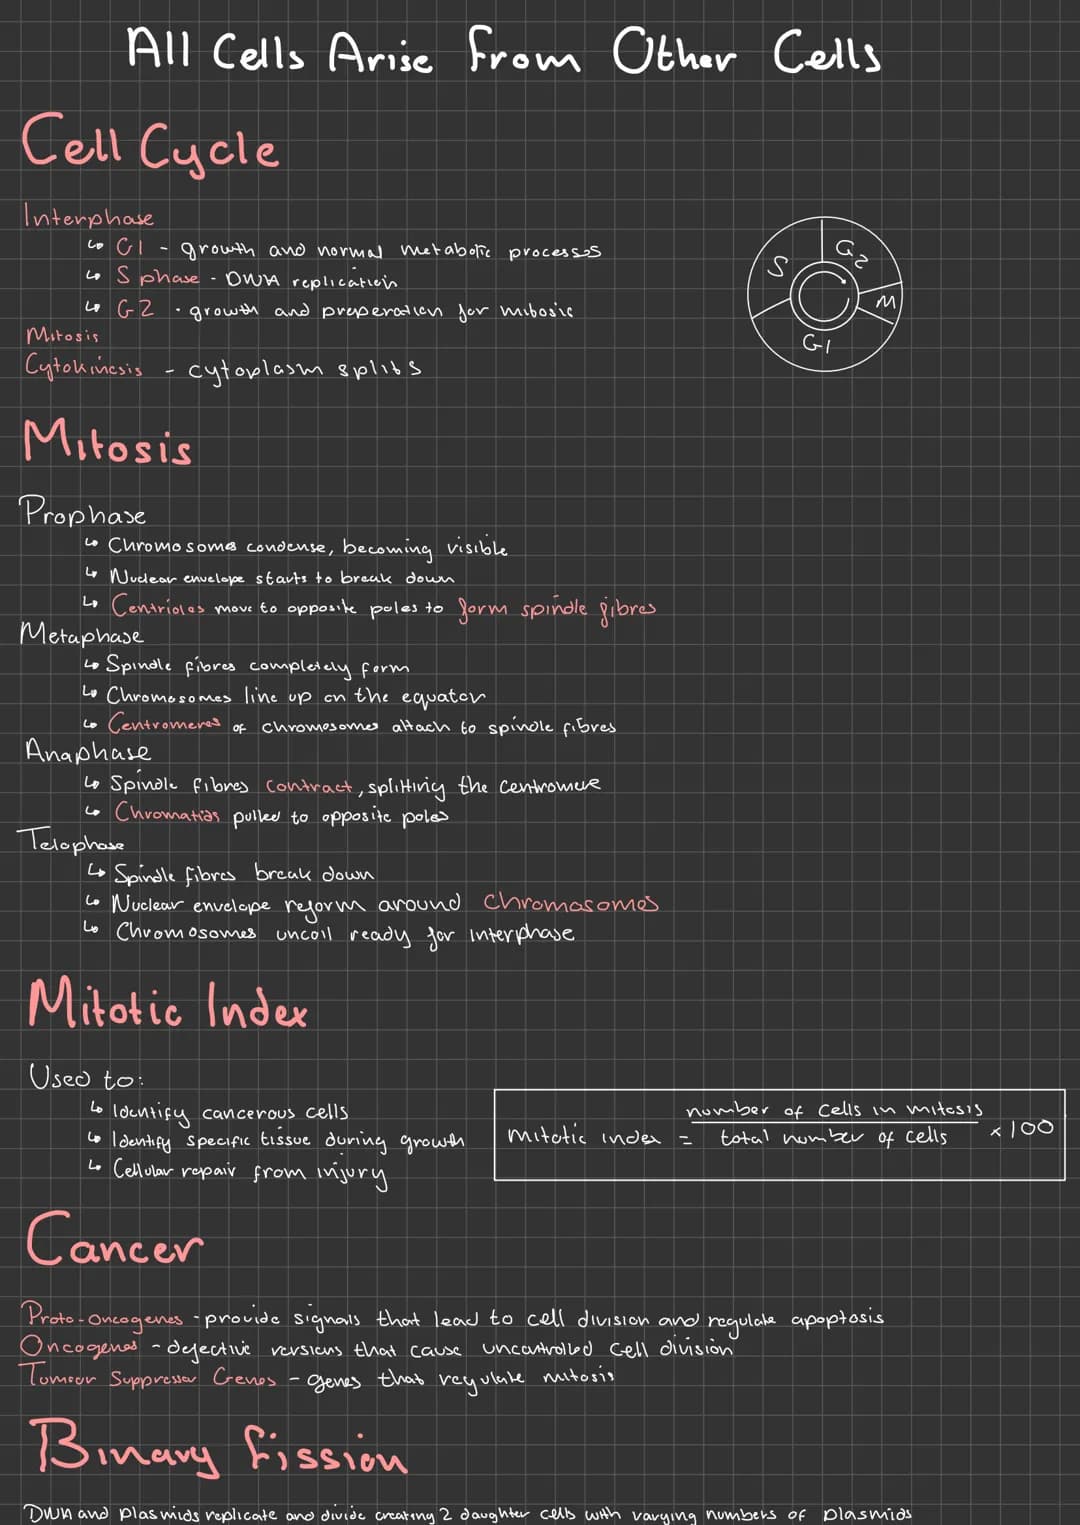 All Cells Arise From Other Cells
Cell Cycle
Interphase
↳ G1 - growth and normal metabolic processes
↳ S phase - DNA replication
↳ G2 - growth and preperation for mitosis
Mitosis
Cytokinesis - cytoplasm splits
S
G2
M
G1
Mitosis
Prophase
↳ Chromosomes condense, becoming visible
↳ Nuclear envelope starts to break down
↳ Centrioles move to opposite poles to form spindle fibres
Metaphase
↳ Spindle fibres completely form
↳ Chromosomes line up on the equator
↳ Centromeres of chromosomes attach to spindle fibres
Anaphase
↳ Spindle fibres contract, splitting the centromere
↳ Chromatids pulled to opposite poles
Telophase
↳ Spindle fibres break down
↳ Nuclear envelope reform around chromosomes
↳ Chromosomes uncoil ready for interphase
Mitotic Index
Used to:
↳ Identify cancerous cells
↳ Identify specific tissue during growth
↳ Cellular repair from injury
mitotic index = number of cells in mitosis / total number of cells × 100
Cancer
Proto-oncogenes - provide signals that lead to cell division and regulate apoptosis
Oncogenes - defective versions that cause uncontrolled cell division
Tumour Suppressor Genes - genes that regulate mitosis
Binary Fission
DNA and plasmids replicate and divide creating 2 daughter cells with varying numbers of plasmids